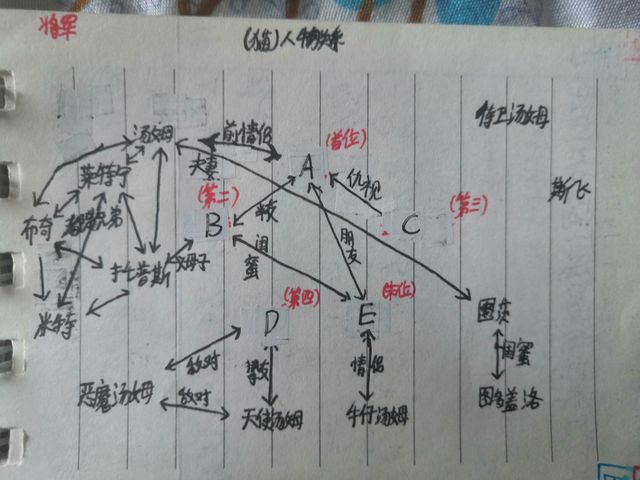 将军
(猫)人物关系
侍卫汤姆
汤姆
前情侣
(首位)
莱特宁
夫妻
A
仇视
斯飞
(第二)
(第三)
布奇
B
C
闺
蜜
朋
友
托普斯
母子
米特
(第四)
(末位)
D
E
图茨
敌对
挚友
情侣
闺蜜
恶魔汤姆
敌对
天使汤姆
牛仔汤姆
图多盖洛